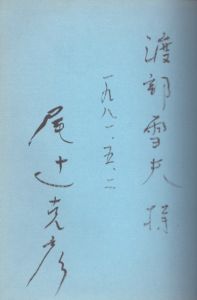 渡部雪夫様
一九八一.五.二
尾辻克彦